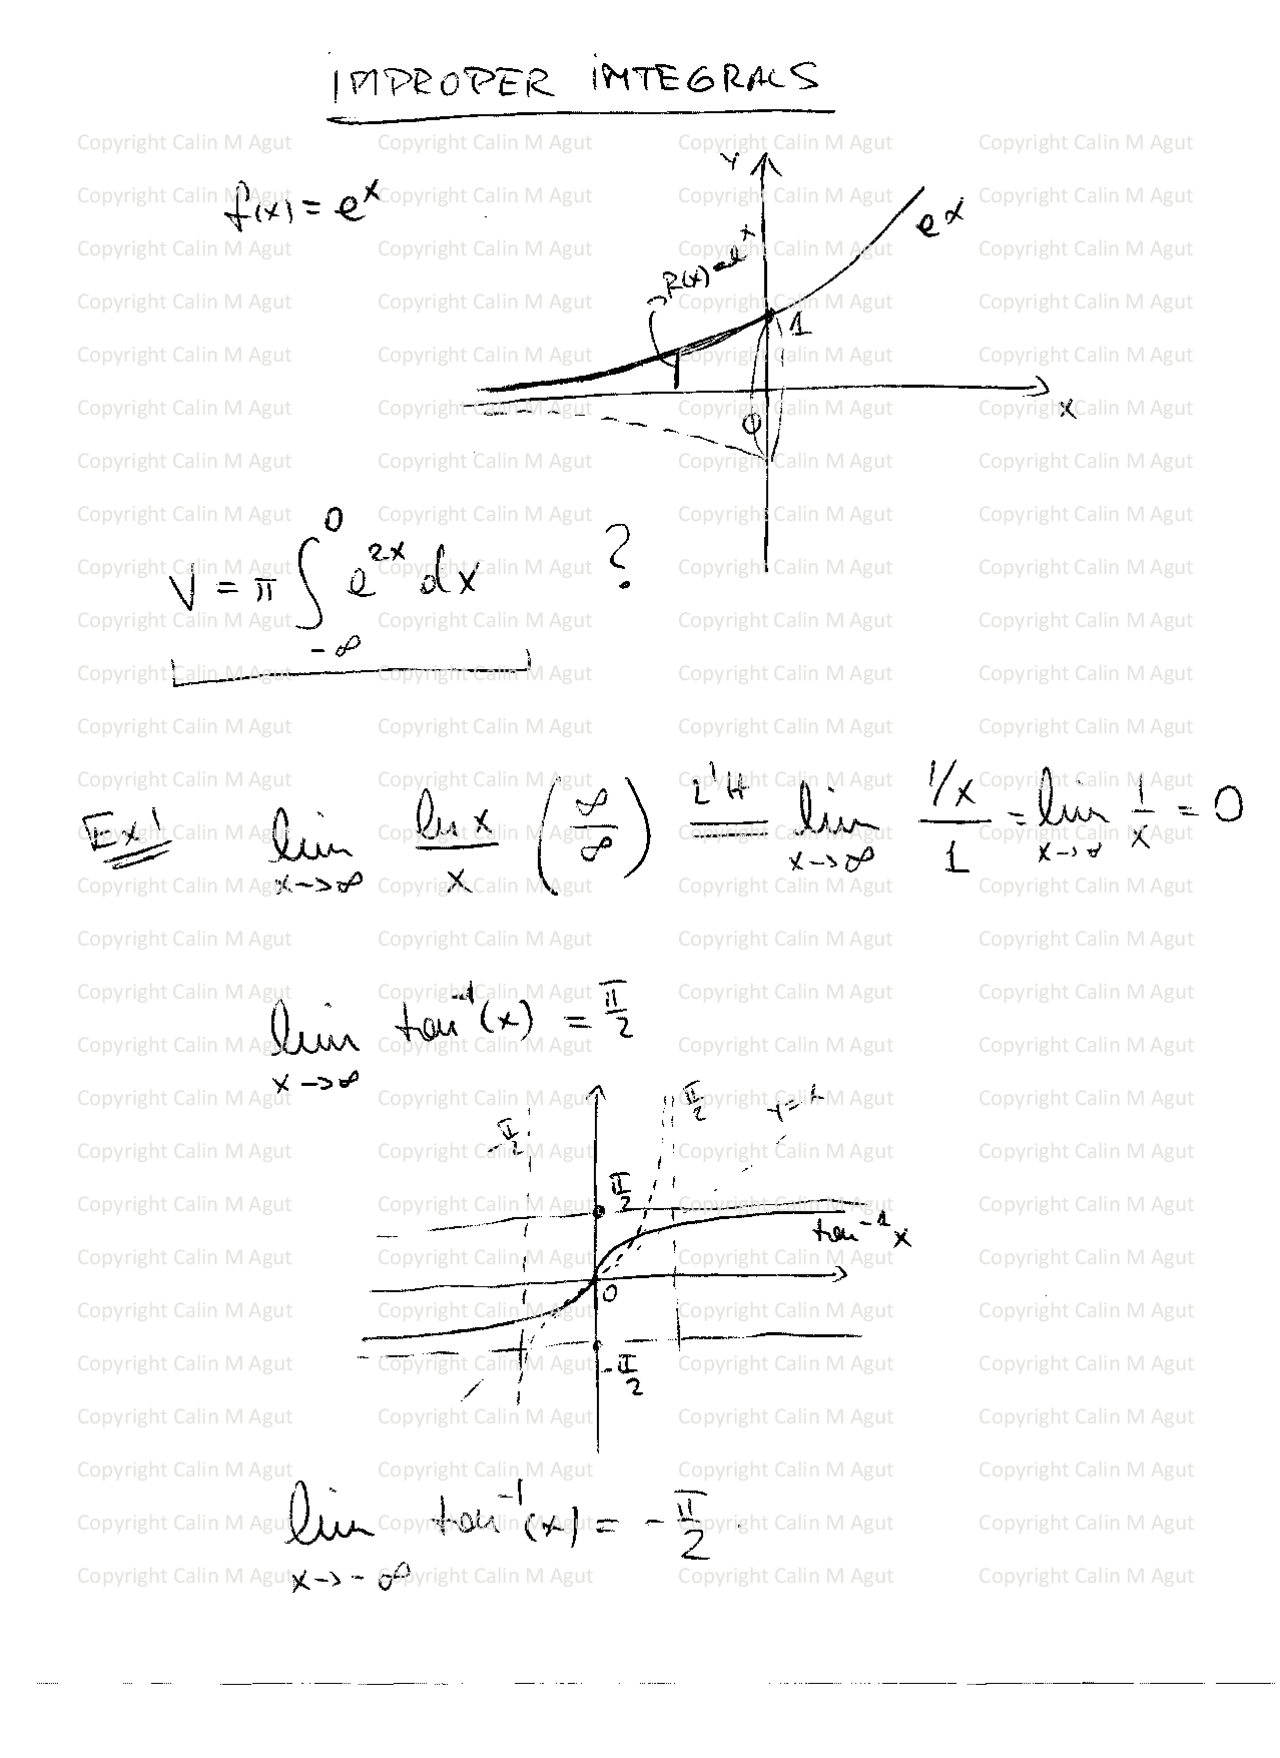 IMPROPER INTEGRALS
f(x) = e^x
y
e^x
R(x) = e^x
1
0
x
V = π ∫_{-∞}^{0} e^{2x} dx ?
Ex! lim_{x→∞} ln x / x (∞/∞) L'H = lim_{x→∞} (1/x)/1 = lim_{x→∞} 1/x = 0
lim_{x→∞} tan^{-1}(x) = π/2
-π/2
π/2
y = x
π/2
tan^{-1} x
0
-π/2
lim_{x→-∞} tan^{-1}(x) = -π/2
Copyright Calin M Agut